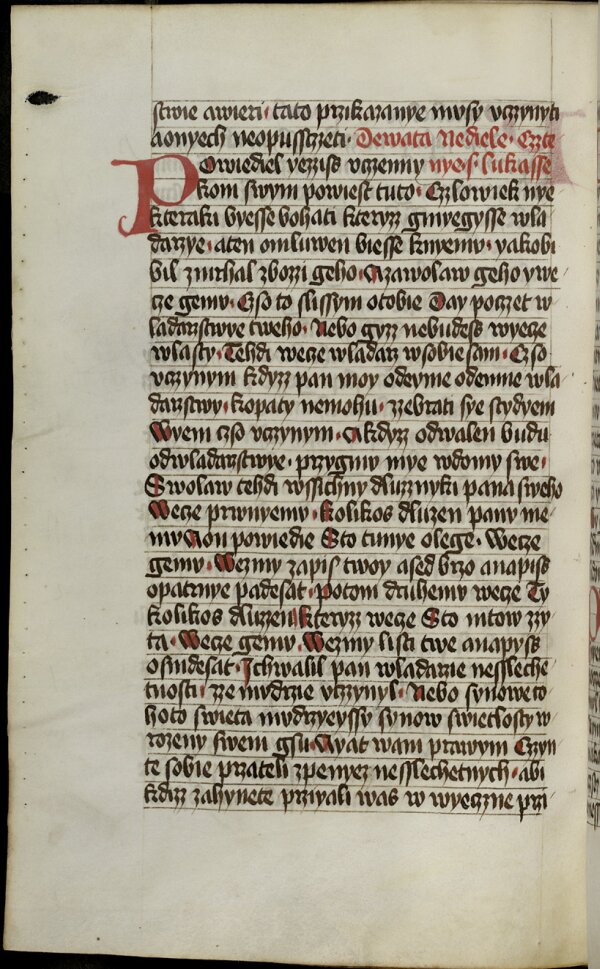 stwie awieri · tato przikazanye mvsy vczynyti
aonyech neopussczeti · Dewata Nediele · Czte
Powiediel yeziss vczenny nye · s · lukasse
kom swym powiest tuto · Czlowiek nye
kteraku byesse bohati kteryz gmyegysse wla
darzye · aten omluwen biesse knyemv · yakobi
bil zmrhal zbozi geho · Azawolaw geho y we
cze gemv · Czso to slissym otobie Day poczet w
ladarstwye tweho · Nebo gyz nebudess wyecze
wlasty · Tehdi wecze wladarz wsobie sam · Czso
vczynym kdyz pan moy odeyme odemne wla
darstwy · kopaty nemohu · zzebrati sye stydyem
Wyem czso vczynym · Akdyz odwalen budu
odwladarstwye · przygmv mye wdomy swe ·
Swolaw tehdi wssichny dluznyki pana sweho
Wecze prwnyemv · kolikos dluzen panv me
mv Aon powiedie Sto tunye olege · Wecze
gemv · Wezmy zapis twoy ased brzo anapiss
opatrnye padesat · Potom druhemv wecze Ty
kolikos dluzen kteryz wecze Sto mtow zzy
ta · Wecze gemv · Wezmy listi twe anapyss
osmdesat · Ichwalil pan wladarzie nesleche
tnosti · ze mvdrzie vczynyl · Nebo synowe to
hoto swieta mvdrzyeyssy synow swietlosty w
rozeny swem gsu · Ayat wam prawym Czyn
te sobie przateli zpenyez nesslechetnych · abi
kdiz zahynete przyyali was w wyeczne przi